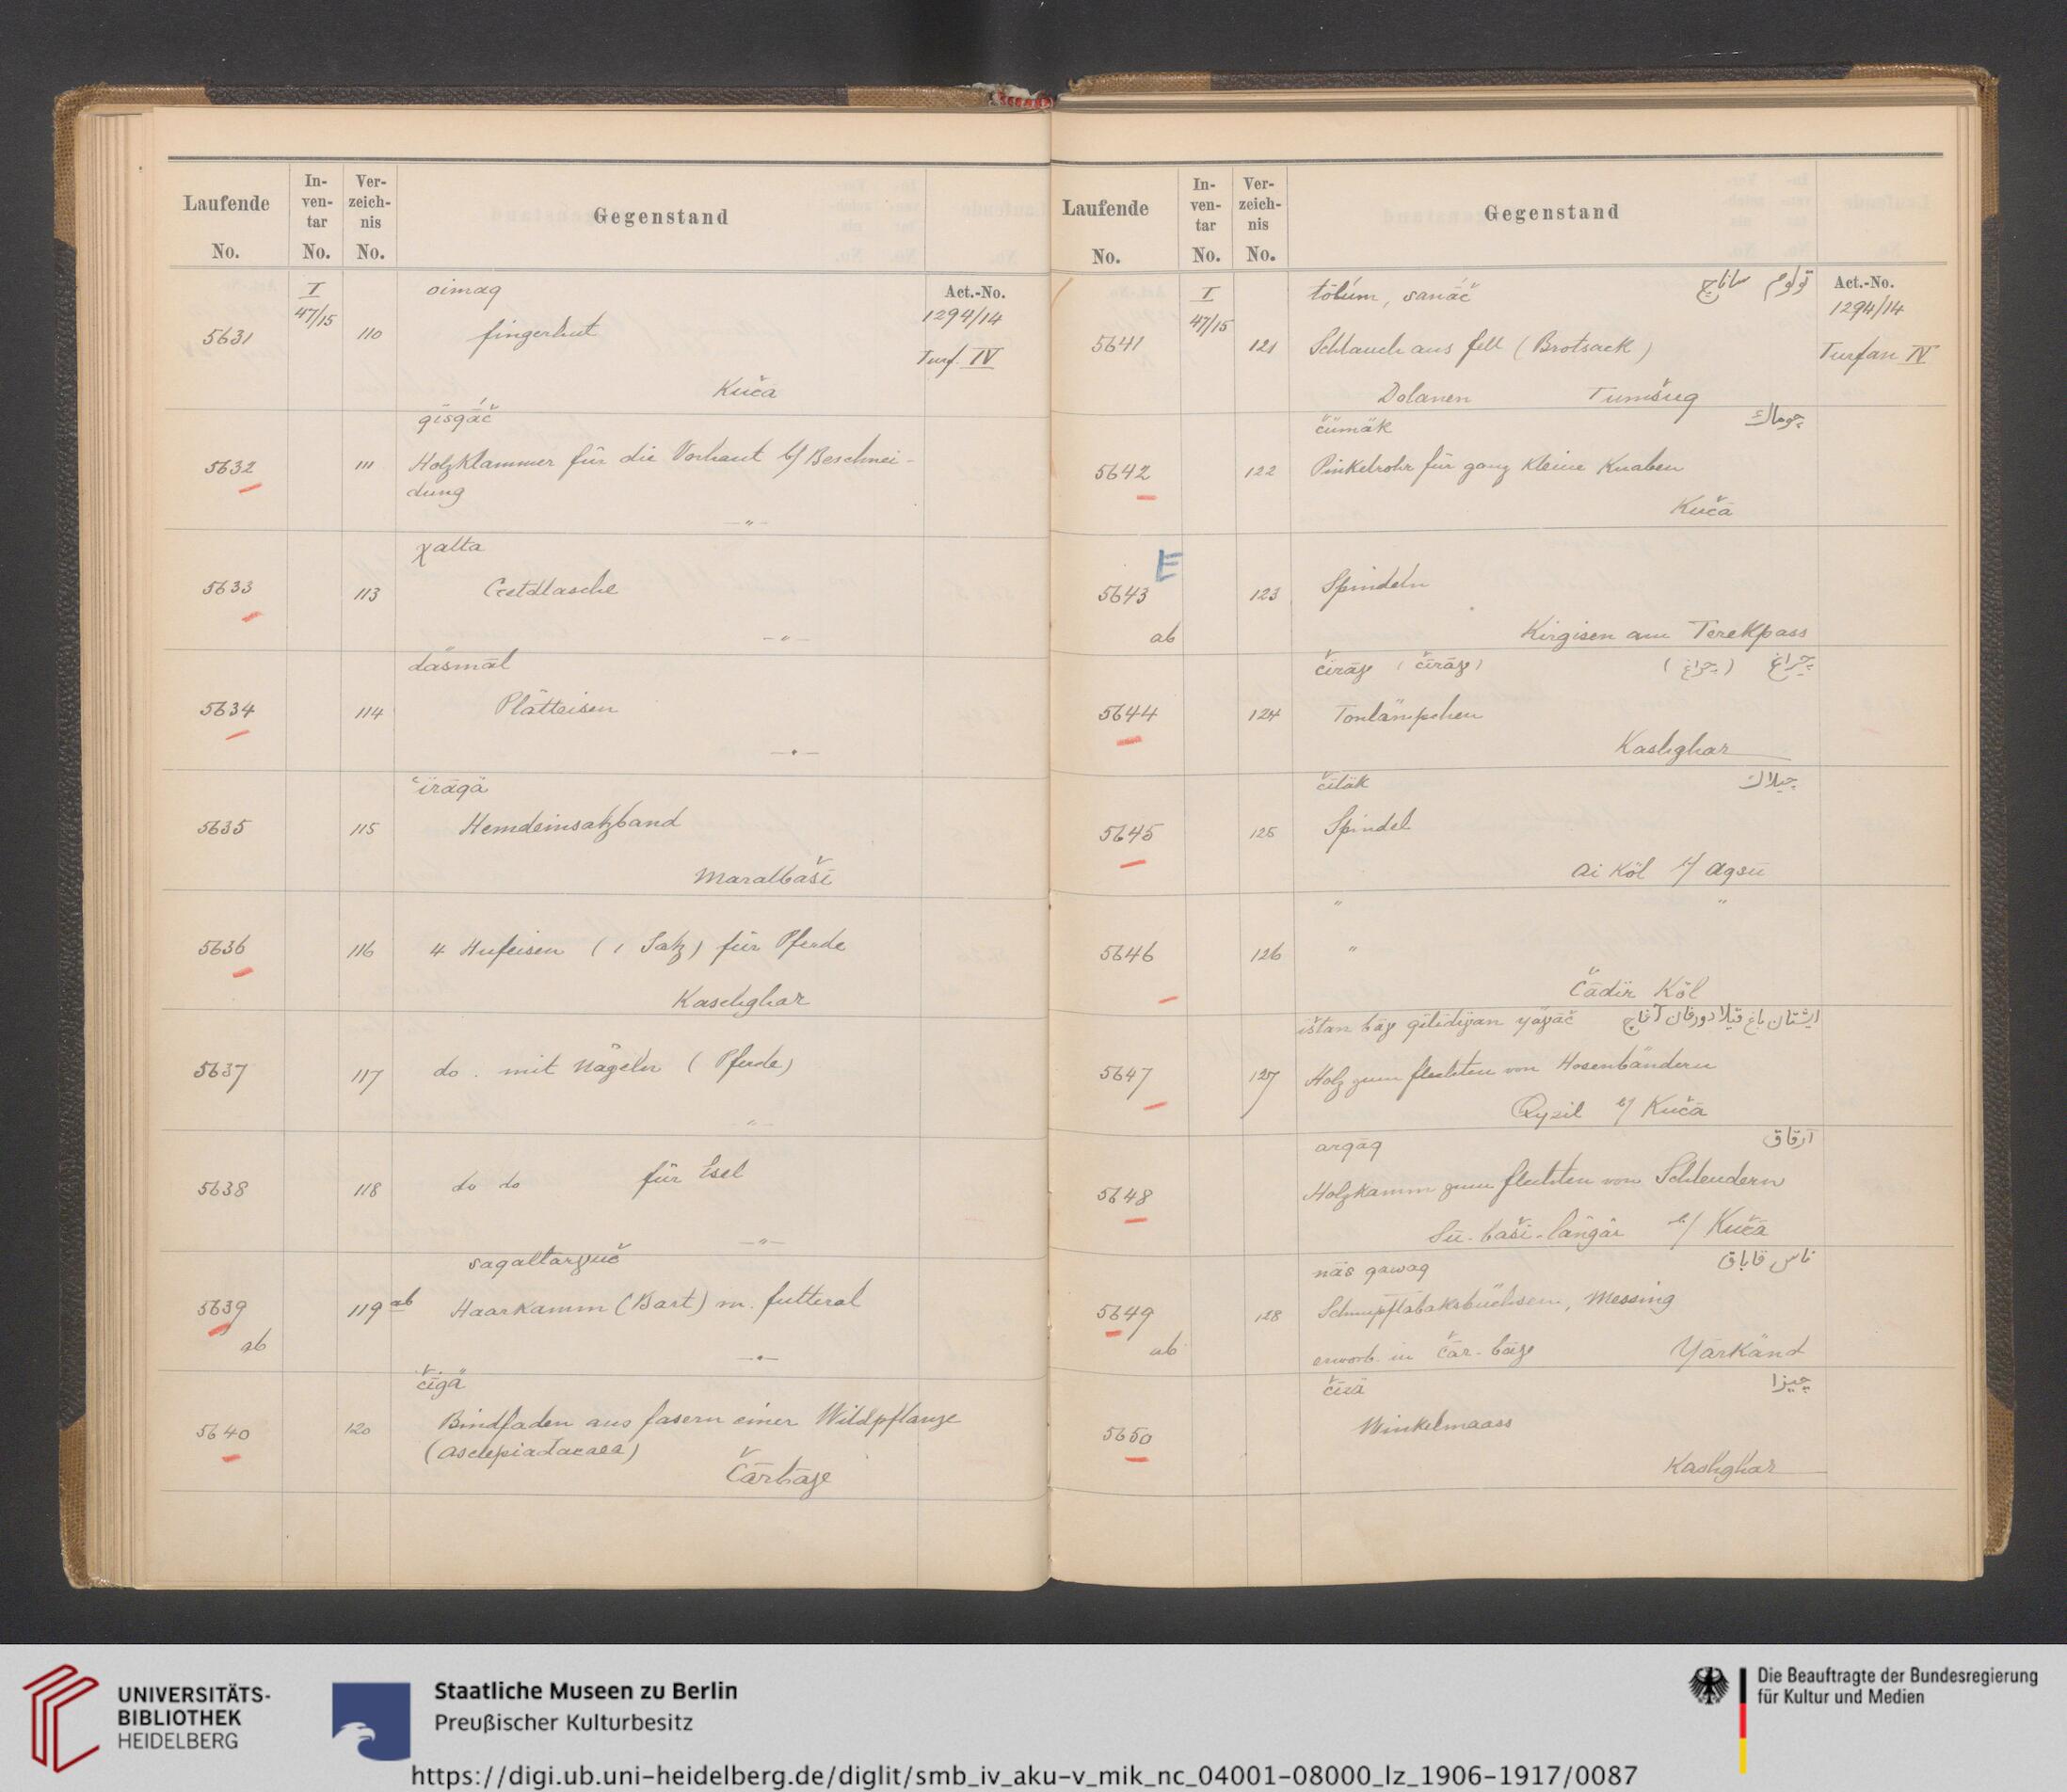 Laufende No.
In-ven-tar No.
Ver-zeich-nis No.
Gegenstand
I 47/15
Act.-No. 1294/14
Turf. IV
oimaq
5631 110 fingerhut
Kuča
qïsqáč
5632 111 Holzklammer für die Vorhaut b/ Beschnei-
dung
-"-
χalta
5633 113 Geldtasche
-"-
däsmāl
5634 114 Plätteisen
-"-
5635 115 Hemdeinsatzband
Maralbašï
5636 116 4 Hufeisen (1 Satz) für Pferde
Kaschghar
5637 117 do. mit Nägeln (Pferde)
-"-
5638 118 do do für Esel
-"-
5639 119 ab Haarkamm (Bart) m. futteral
ab
-"-
čigä
5640 120 Bindfaden aus fasern einer Wildpflanze
(asclepiadacaea)
Čārbāγ
Laufende No.
In-ven-tar No.
Ver-zeich-nis No.
Gegenstand
I 47/15
Act.-No. 1294/14
Turfan IV
tölúm, sanáč تولوم ساناچ
5641 121 Schlauch aus fell (Brotsack)
Dolanen Tumšuq
čümäk چوماك
5642 122 Pinkelrohr für ganz kleine Knaben
Kučā
E
5643 123 Spindeln
ab Kirgisen am Terekpass
čirāγ (čïrāγ) چراغ (چراغ)
5644 124 Tonlämpchen
Kashghar
čïläk چيلاك
5645 125 Spindel
Ai Köl b/ Aqsū
" "
5646 126 "
Čādïr Köl
5647 127 Holz zum flechten von Hosenbändern
Qyzil b/ Kučā
arqāq آرقاق
5648 Holzkamm zum flechten von Schleudern
Sū-baši-längär b/ Kučā
nās qawaq ناس قاباق
5649 128 Schnupftabaksbüchsen, Messing
ab erworb. in Čar-bāγ Yārkänd
چيزا
5650 Winkelmaass
Kashghar
UNIVERSITÄTS-
BIBLIOTHEK
HEIDELBERG
Staatliche Museen zu Berlin
Preußischer Kulturbesitz
Die Beauftragte der Bundesregierung
für Kultur und Medien
https://digi.ub.uni-heidelberg.de/diglit/smb_iv_aku-v_mik_nc_04001-08000_lz_1906-1917/0087